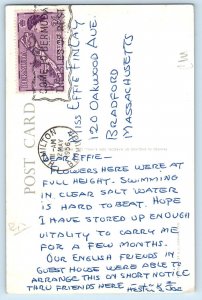 POST CARD
BERMUDA
HAMILTON
MAY
56
MISS EFFIE FINLAY
120 OAKWOOD AVE
BRADFORD
MASSACHUSETTS
DEAR EFFIE-
FLOWERS HERE WERE AT
FULL HEIGHT. SWIMMING
IN CLEAR SALT WATER
IS HARD TO BEAT. HOPE
I HAVE STORED UP ENOUGH
VITALITY TO CARRY ME
FOR A FEW MONTHS.
OUR ENGLISH FRIENDS IN
GUEST HOUSE WERE ABLE TO
ARRANGE THIS ON SHORT NOTICE
THRU FRIENDS HERE.